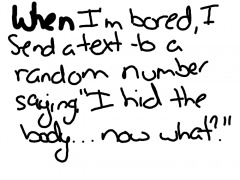 When I'm bored, I
Send a text to a
random number
saying "I hid the
body... now what!?"